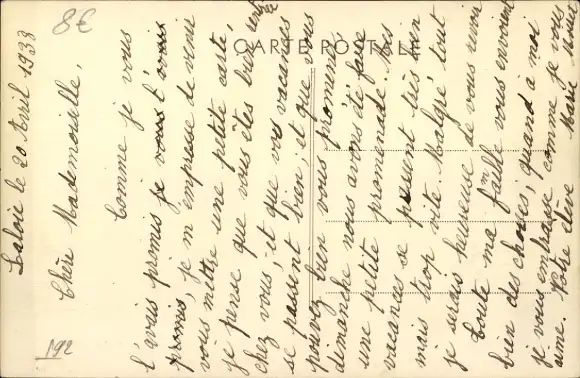 8€
CARTE POSTALE
192
Laloie le 20 Avril 1933
Chère Mademoiselle,
Comme je vous
l'avais promis je vous l'avais
promis, je m'empresse de venir
vous mettre une petite carte,
je pense que vous êtes bien rentrée
chez vous, et que vos vacances
se passent bien, et que vous
pouvez bien vous promener
dimanche nous avons été faire
une petite promenade. Mes
vacances se passent très bien
mais trop vite. Malgré tout
je serais heureuse de vous revoir
Toute ma famille vous envoient
bien des choses, quand à moi
je vous embrasse comme je vous
aime. Votre élève Marie